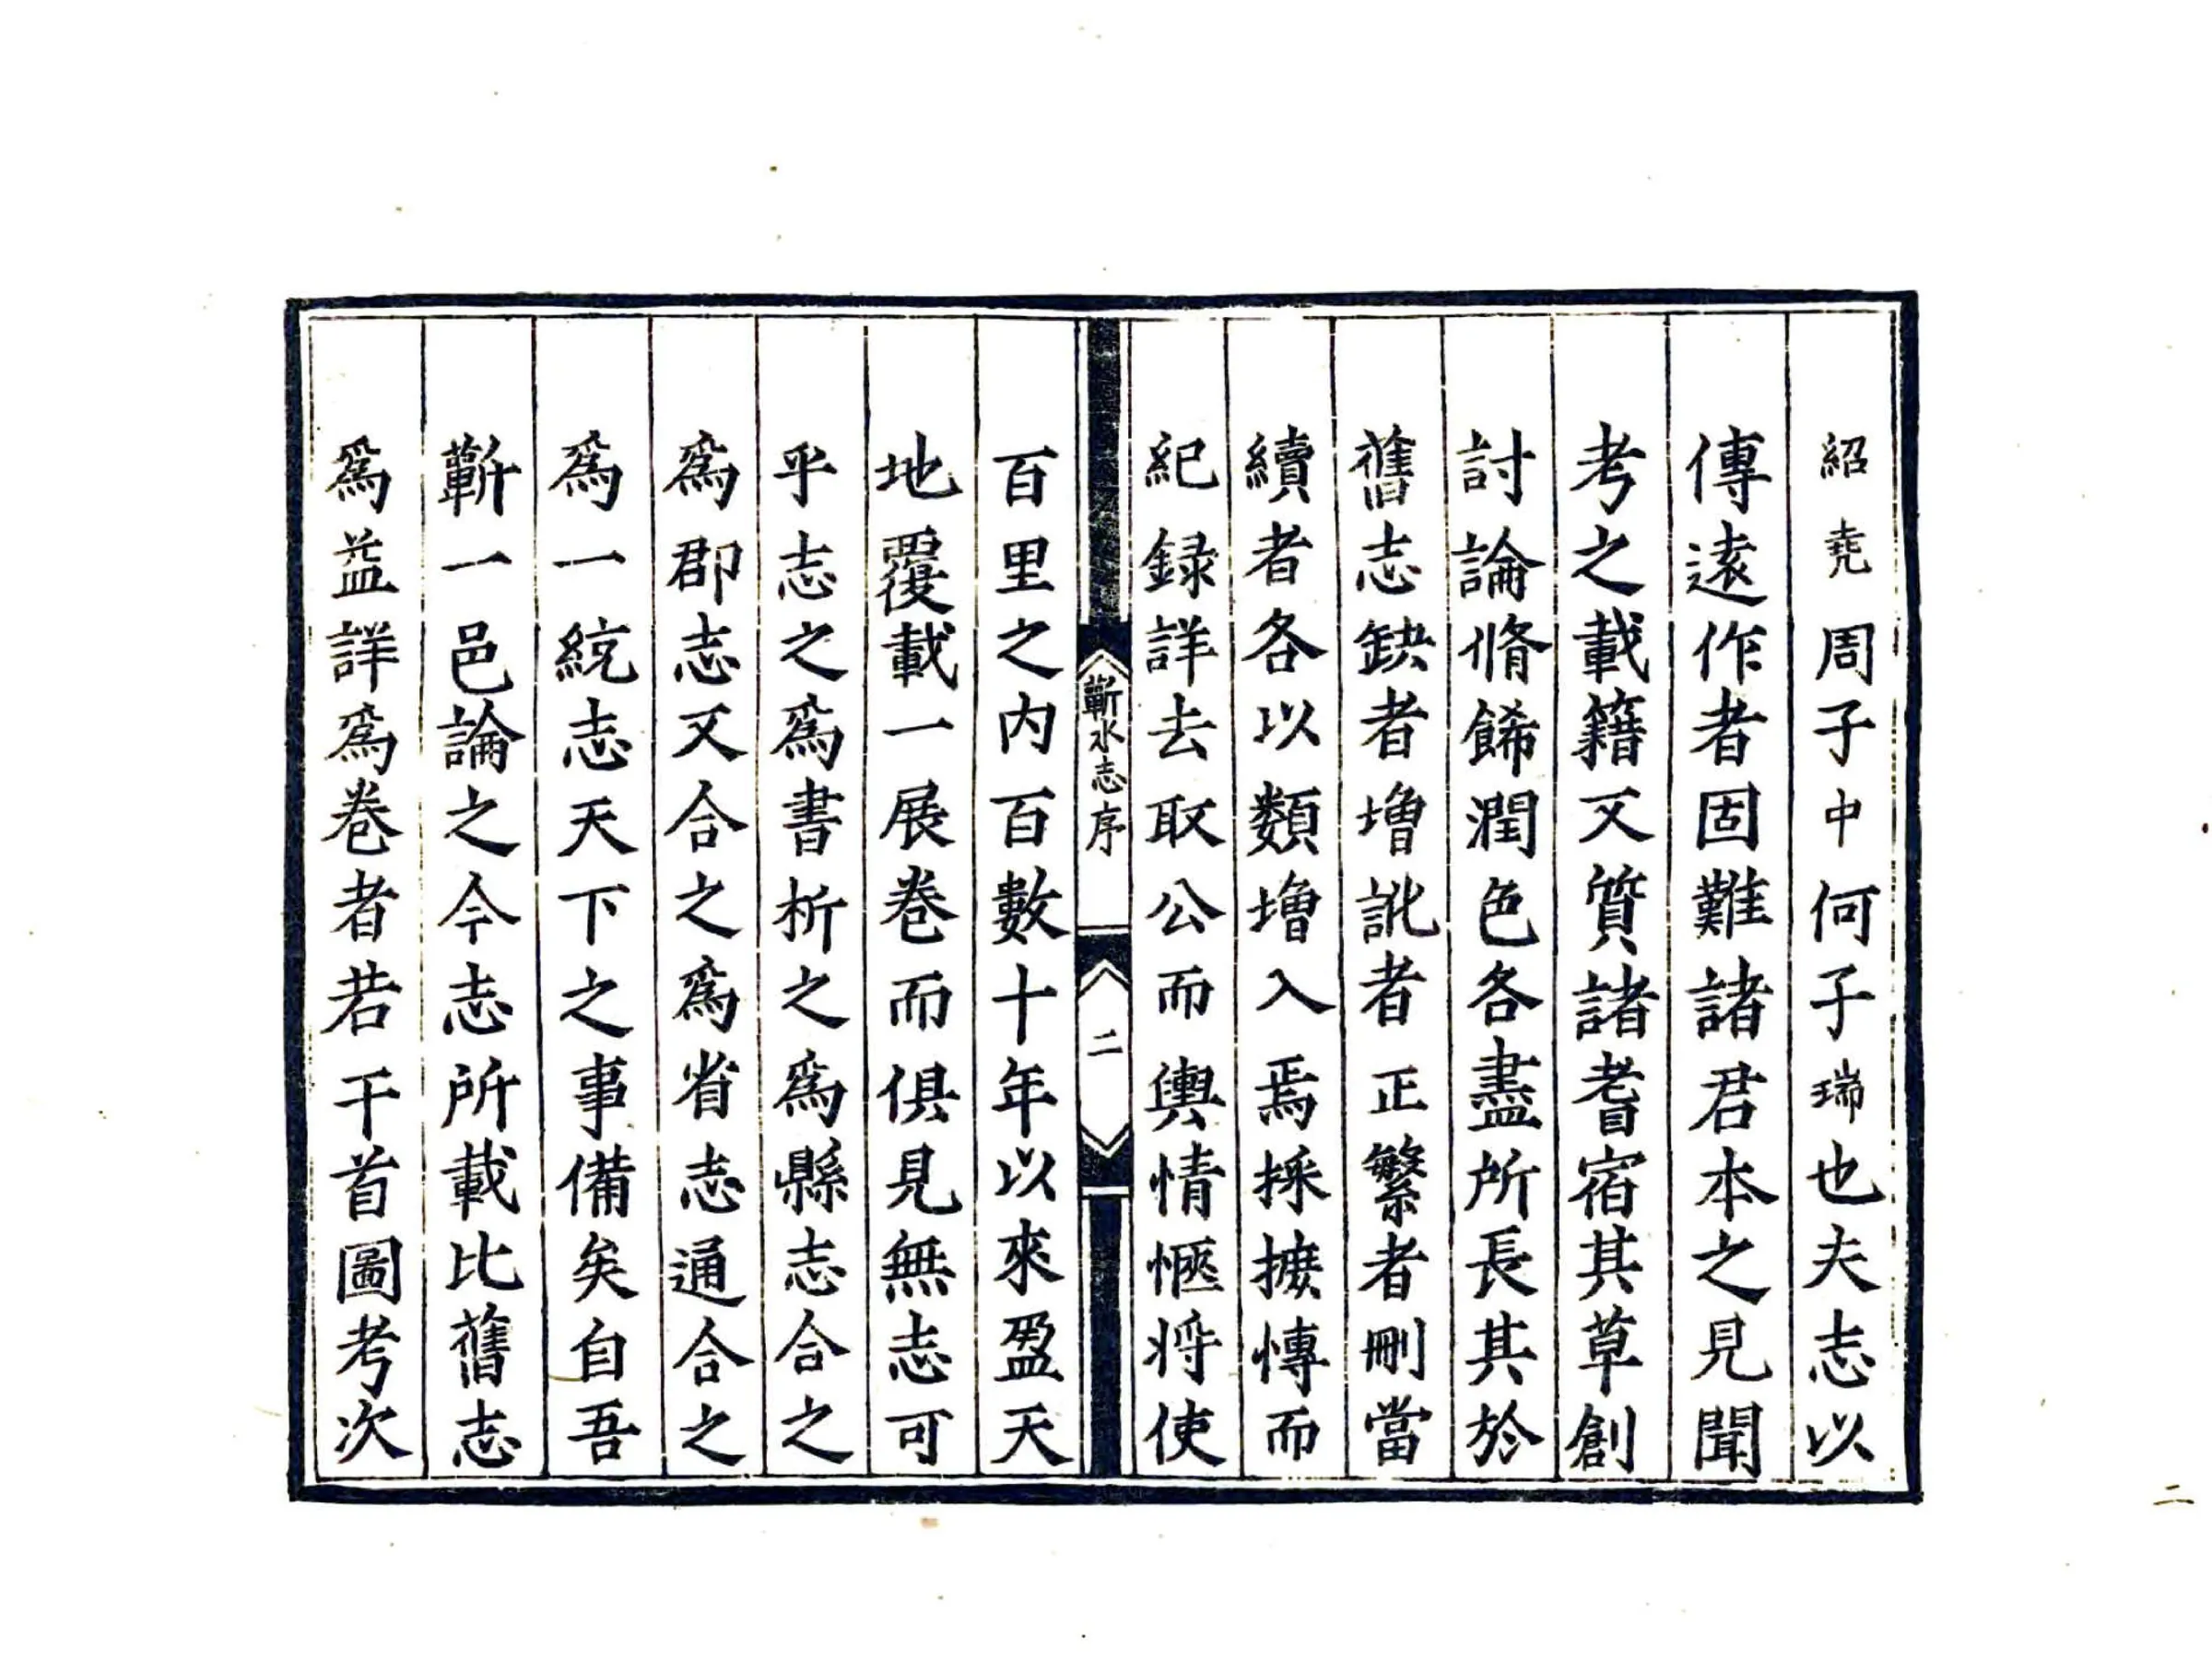 紹堯周子中何子瑞也夫志以
傳遠作者固難諸君本之見聞
考之載籍又質諸耆宿其草創
討論脩餙潤色各盡所長其於
舊志缺者增訛者正繁者刪當
續者各以類增入焉採摭慱而
紀録詳去取公而輿情愜将使
蘄水志序
二
百里之内百數十年以來盈天
地覆載一展卷而俱見無志可
乎志之為書析之為縣志合之
為郡志又合之為省志通合之
為一統志天下之事備矣自吾
蘄一邑論之今志所載比舊志
為益詳為卷者若干首圖考次
二